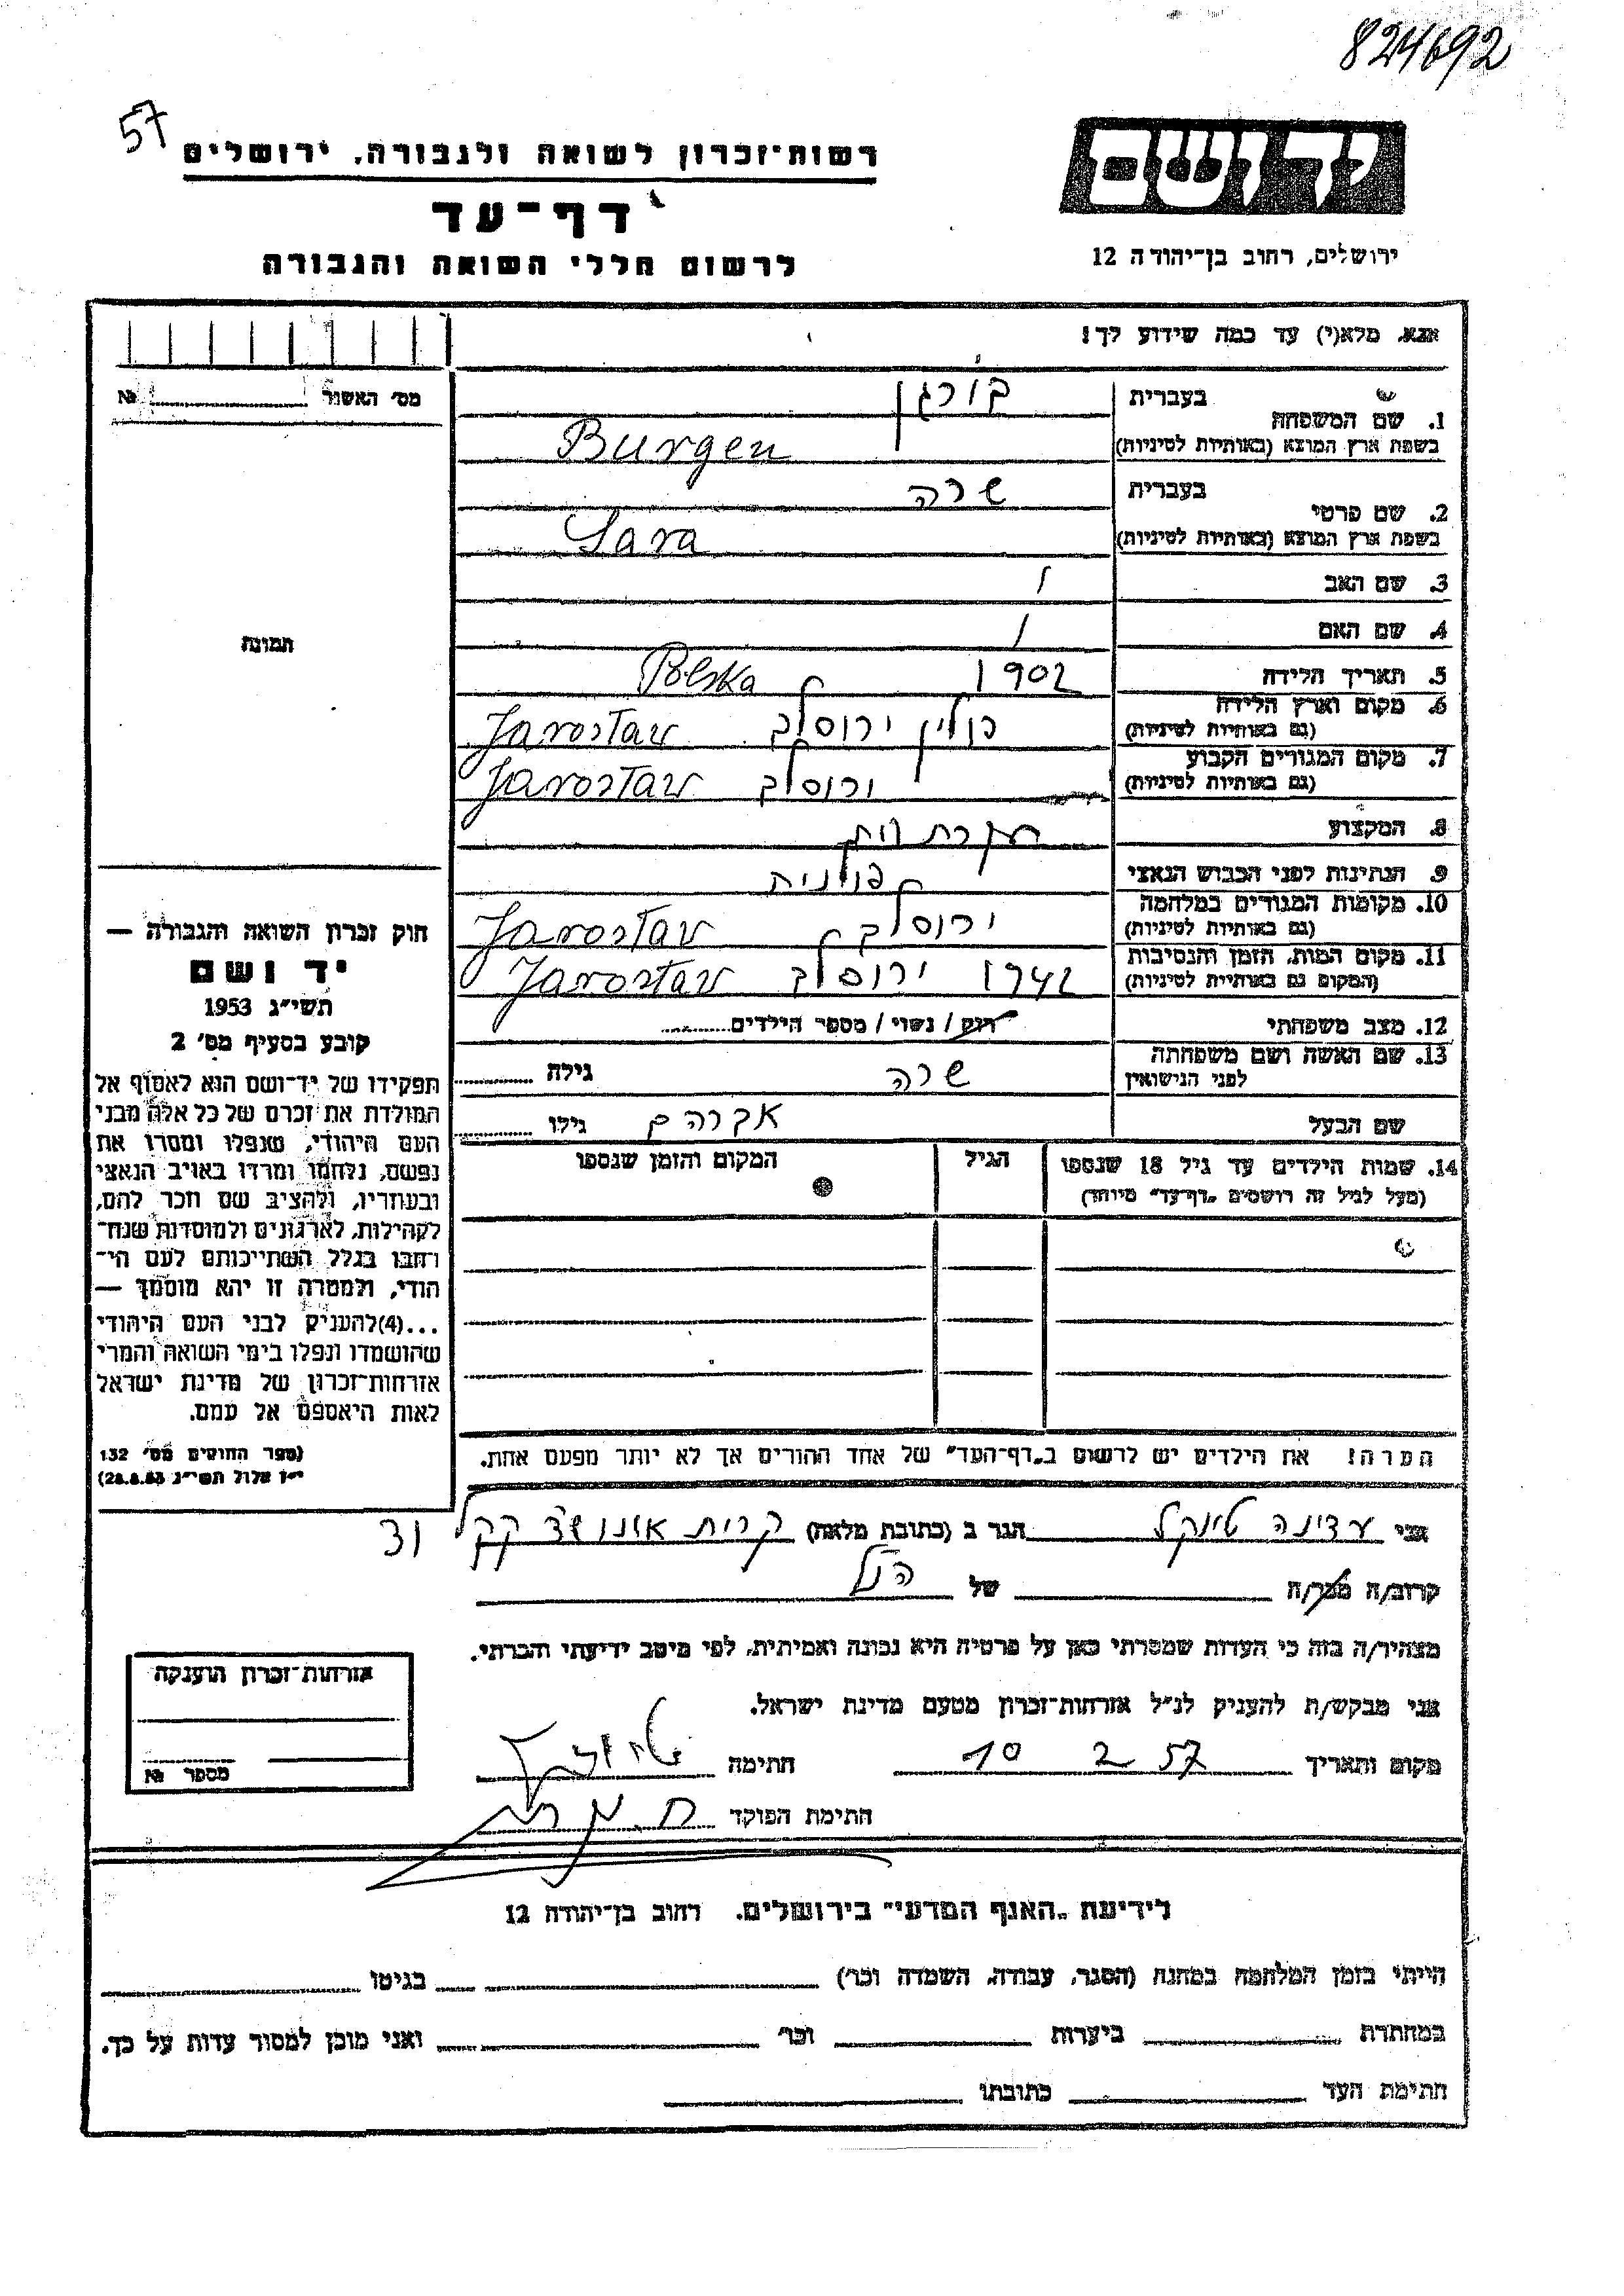 824692
57
יד ושם
רשות־זכרון לשואה ולגבורה, ירושלים
דף־עד
לרשום חללי השואה והגבורה
ירושלים, רחוב בן־יהודה 12
אנא, מלא(י) עד כמה שידוע לך!
מס׳ האשור № 
1. שם המשפחה
בעברית
בורגן
בשפת ארץ המוצא (באותיות לטיניות)
Burgen
2. שם פרטי
בעברית
שרה
בשפת ארץ המוצא (באותיות לטיניות)
Sara
3. שם האב /
4. שם האם /
5. תאריך הלידה 1902
6. מקום וארץ הלידה
(גם באותיות לטיניות)
Polska
פולין ירוסלב Jarosław
7. מקום המגורים הקבוע
(גם באותיות לטיניות)
ירוסלב Jarosław
8. המקצוע עקרת בית
9. הנתינות לפני הכבוש הנאצי פולנית
10. מקומות המגורים במלחמה
(גם באותיות לטיניות)
ירוסלב Jarosław
11. מקום המות, הזמן והנסיבות
(המקום גם באותיות לטיניות)
1942 ירוסלב Jarosław
12. מצב משפחתי רווק / נשוי / מספר הילדים
13. שם האשה ושם משפחתה
לפני הנישואין
שרה גילה
שם הבעל אברהם גילו
14. שמות הילדים עד גיל 18 שנספו
(מעל לגיל זה רושמים „דף־עד״ מיוחד)
הגיל
המקום והזמן שנספו
תמונה
חוק זכרון השואה והגבורה —
יד ושם
תשי״ג 1953
קובע בסעיף מס׳ 2
תפקידו של יד־ושם הוא לאסוף אל
המולדת את זכרם של כל אלה מבני
העם היהודי, שנפלו ומסרו את
נפשם, נלחמו ומרדו באויב הנאצי
ובעוזריו, ולהציב שם וזכר להם,
לקהילות, לארגונים ולמוסדות שנח־
רבו בגלל השתייכותם לעם הי־
הודי, ולמטרה זו יהא מוסמך —
...(4)להעניק לבני העם היהודי
שהושמדו ונפלו בימי השואה והמרי
אזרחות־זכרון של מדינת ישראל
לאות היאספם אל עמם.
(ספר החוקים מס׳ 132
י״ז אלול תשי״ג 28.8.53)
הערה! את הילדים יש לרשום ב„דף־העד״ של אחד ההורים אך לא יותר מפעם אחת.
אני עדינה טינקל הגר ב (כתובת מלאה) קרית אונו שד קקל
קרוב/ה מכר/ה של הנ״ל
מצהיר/ה בזה כי העדות שמסרתי כאן על פרטיה היא נכונה ואמיתית, לפי מיטב ידיעתי והכרתי.
אני מבקש/ת להעניק לנ״ל אזרחות־זכרון מטעם מדינת ישראל.
מקום ותאריך 10 2 57 חתימה
חתימת הפוקד
אזרחות־זכרון הוענקה
מספר №
לידיעת „האגף המדעי״ בירושלים, רחוב בן־יהודה 12
הייתי בזמן המלחמה במחנה (הסגר, עבודה, השמדה וכו׳) בגיטו
במחתרת ביערות וכו׳ ואני מוכן למסור עדות על כך.
חתימת העד כתובתו